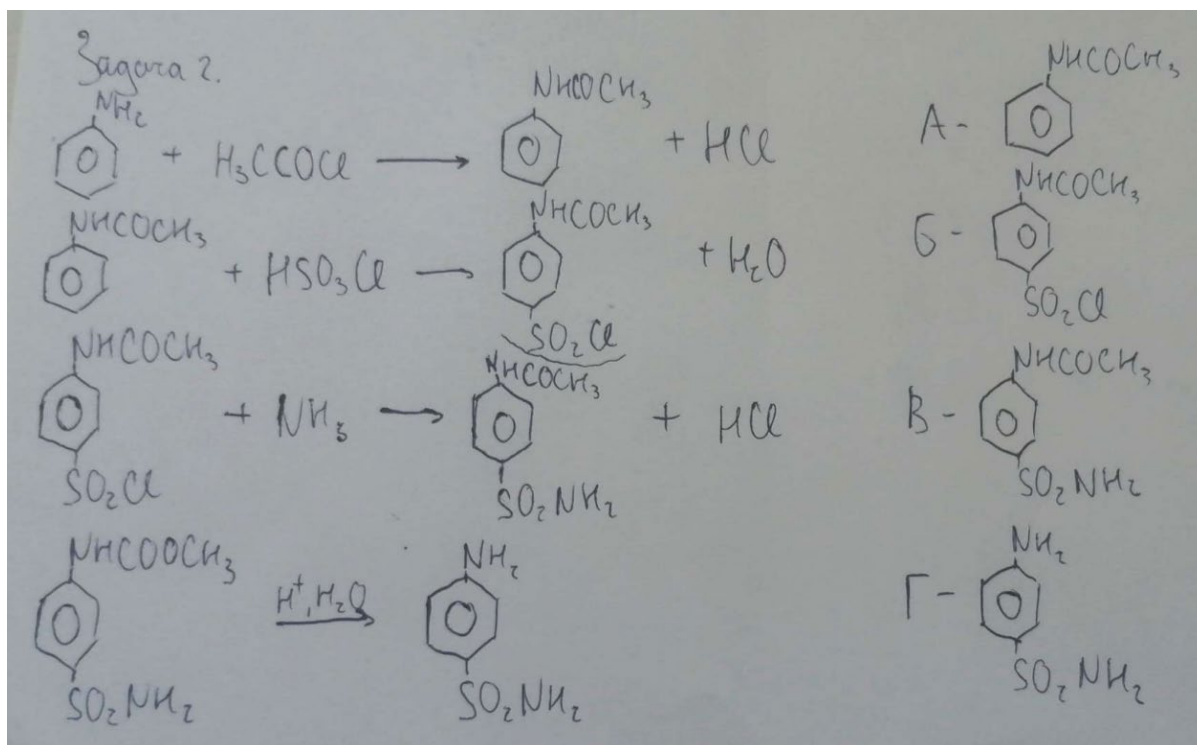 Задача 2.
NH₂ + H₃CCOCl → NHCOCH₃ + HCl
NHCOCH₃ + HSO₃Cl → NHCOCH₃ SO₂Cl + H₂O
NHCOCH₃ SO₂Cl + NH₃ → NHCOCH₃ SO₂NH₂ + HCl
NHCOOCH₃ SO₂NH₂ H⁺, H₂O → NH₂ SO₂NH₂
А - NHCOCH₃
Б - NHCOCH₃ SO₂Cl
В - NHCOCH₃ SO₂NH₂
Г - NH₂ SO₂NH₂